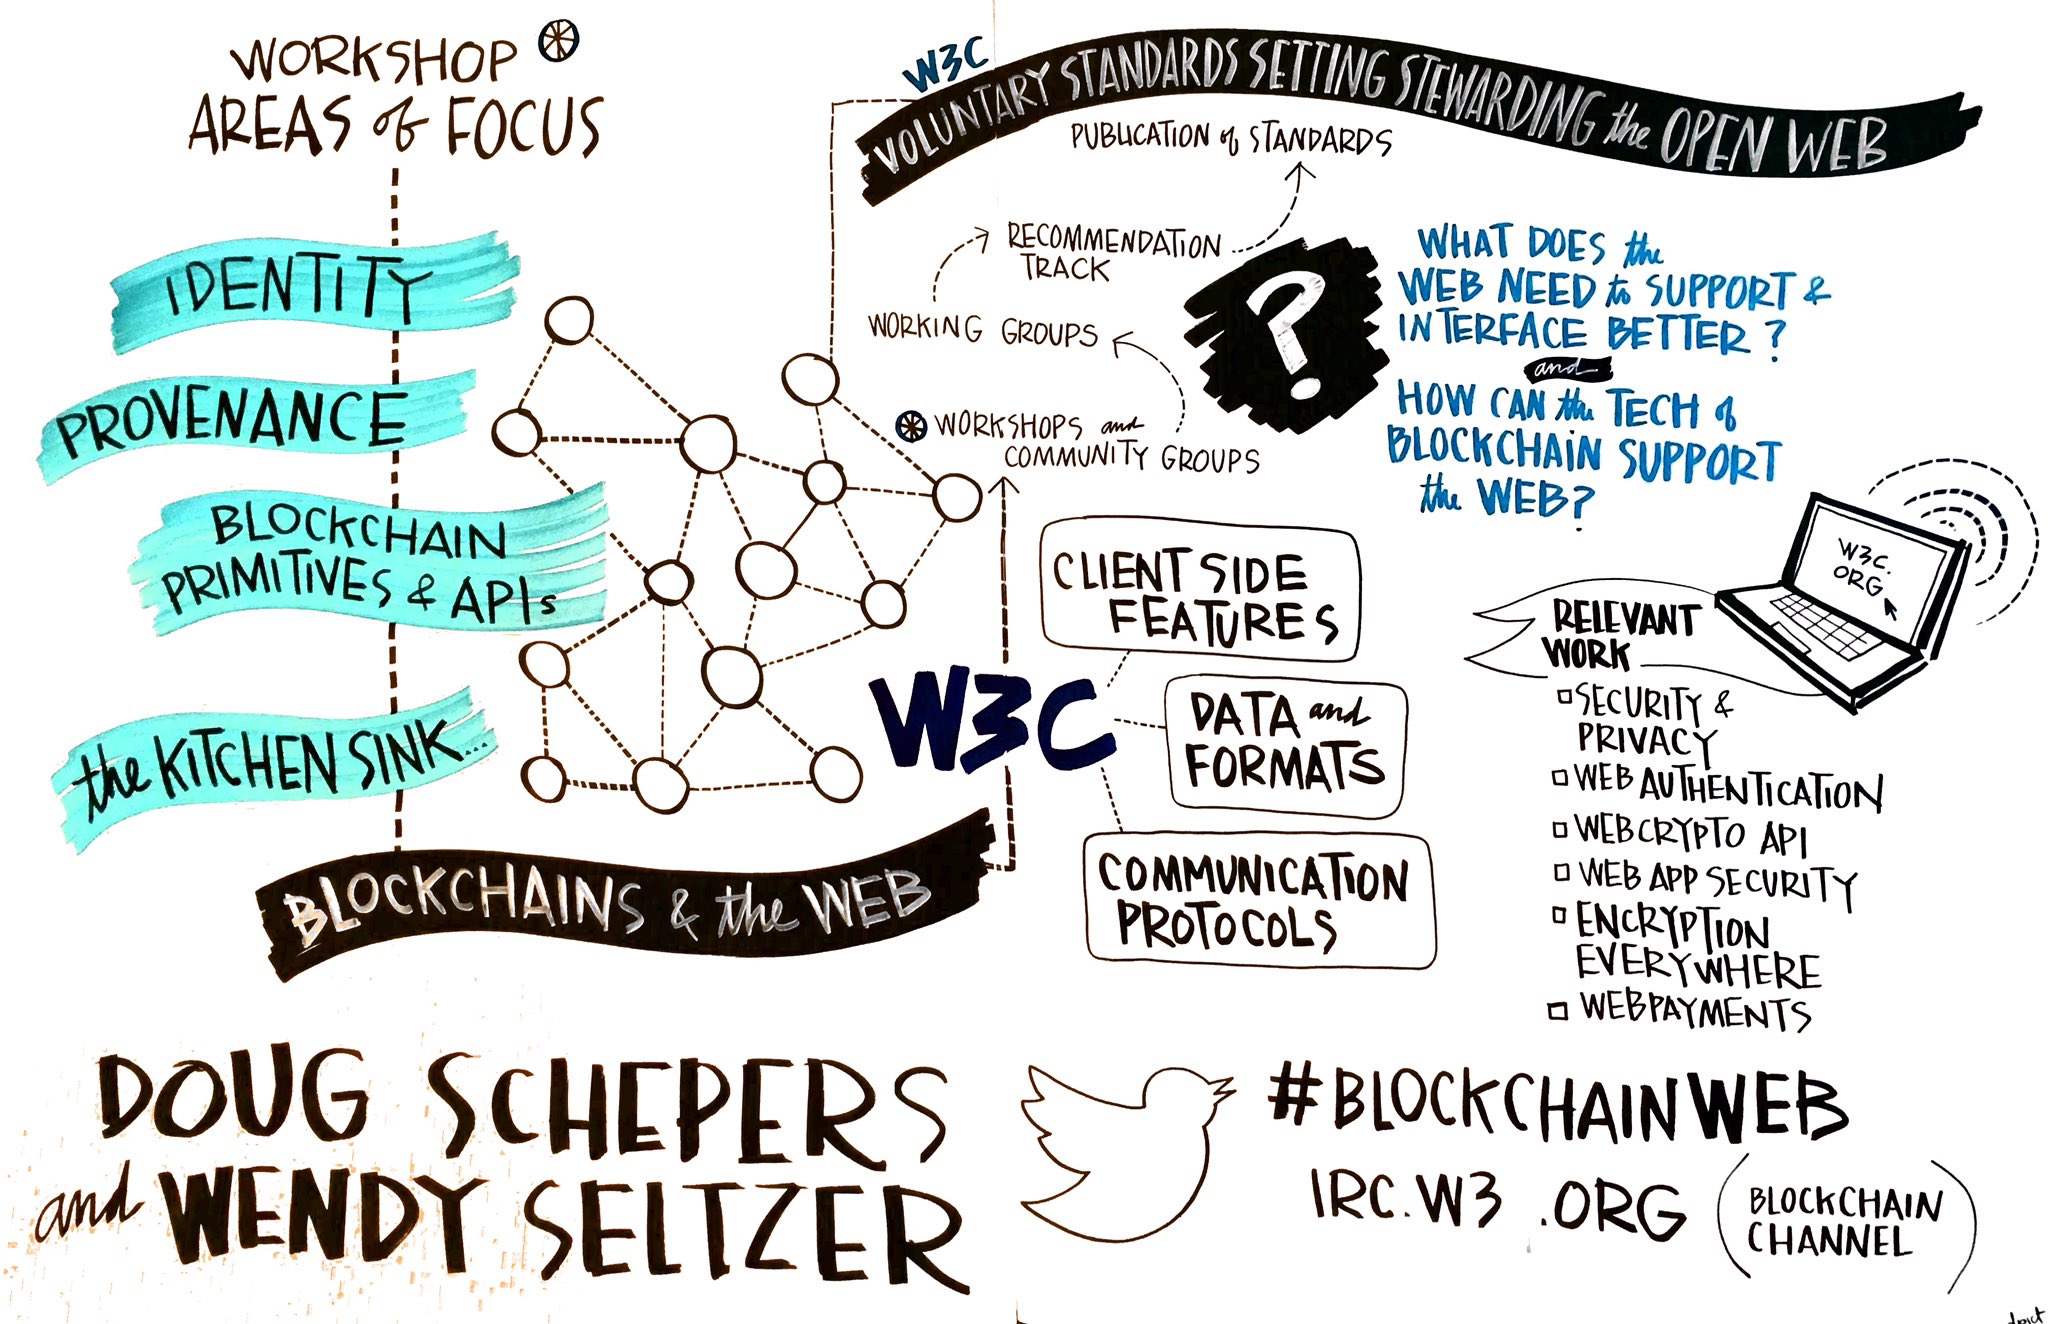 WORKSHOP
AREAS of FOCUS
IDENTITY
PROVENANCE
BLOCKCHAIN
PRIMITIVES & APIs
the KITCHEN SINK...
BLOCKCHAINS & the WEB
W3C
VOLUNTARY STANDARDS SETTING STEWARDING the OPEN WEB
PUBLICATION of STANDARDS
RECOMMENDATION
TRACK
WORKING GROUPS
WORKSHOPS and
COMMUNITY GROUPS
?
WHAT DOES the
WEB NEED to SUPPORT &
INTERFACE BETTER?
and
HOW CAN the TECH of
BLOCKCHAIN SUPPORT
the WEB?
W3C
CLIENT SIDE
FEATURES
DATA and
FORMATS
COMMUNICATION
PROTOCOLS
W3C.
ORG
RELEVANT
WORK
SECURITY &
PRIVACY
WEB AUTHENTICATION
WEBCRYPTO API
WEB APP SECURITY
ENCRYPTION
EVERYWHERE
WEBPAYMENTS
DOUG SCHEPERS
and WENDY SELTZER
#BLOCKCHAINWEB
IRC.W3.ORG
(BLOCKCHAIN
CHANNEL)